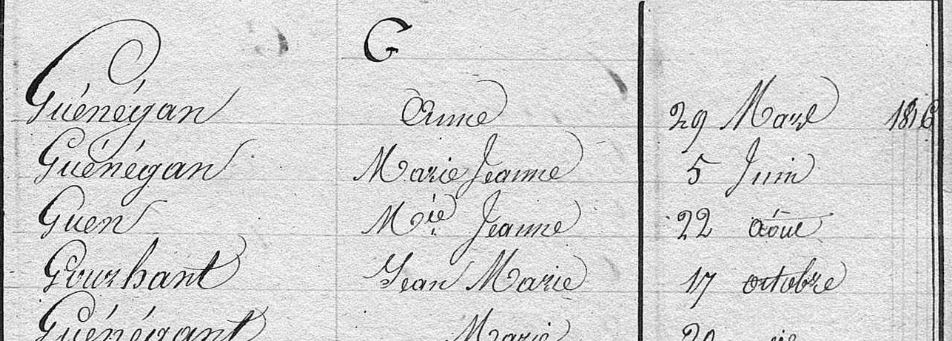 G
Guénégan Anne 29 Mars 1816
Guénégan Marie Jeanne 5 Juin
Guen Mie Jeanne 22 Août
Gourhant Jean Marie 17 octobre
Guénégant Marie 20